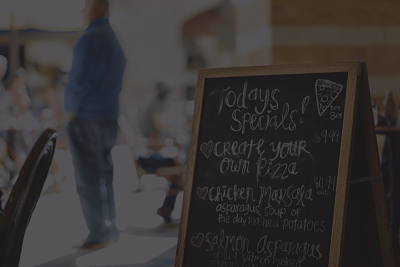 Todays
Specials!
$9.99
CREATE YOUR
OWN PIZZA
CHICKEN MARSALA
asparagus soup of
the day mashed potatoes
SALMON ASPARAGUS